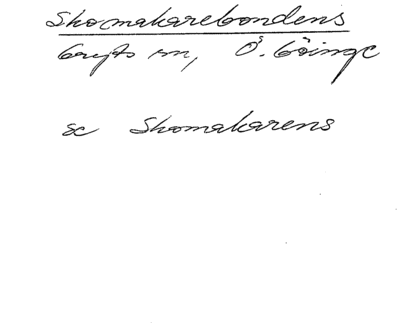 Skomakarebondens
Gryts sn, Ö. Göinge
se Skomakarens